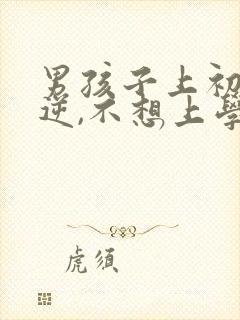 男孩子上初
逆,不想上學
虎須